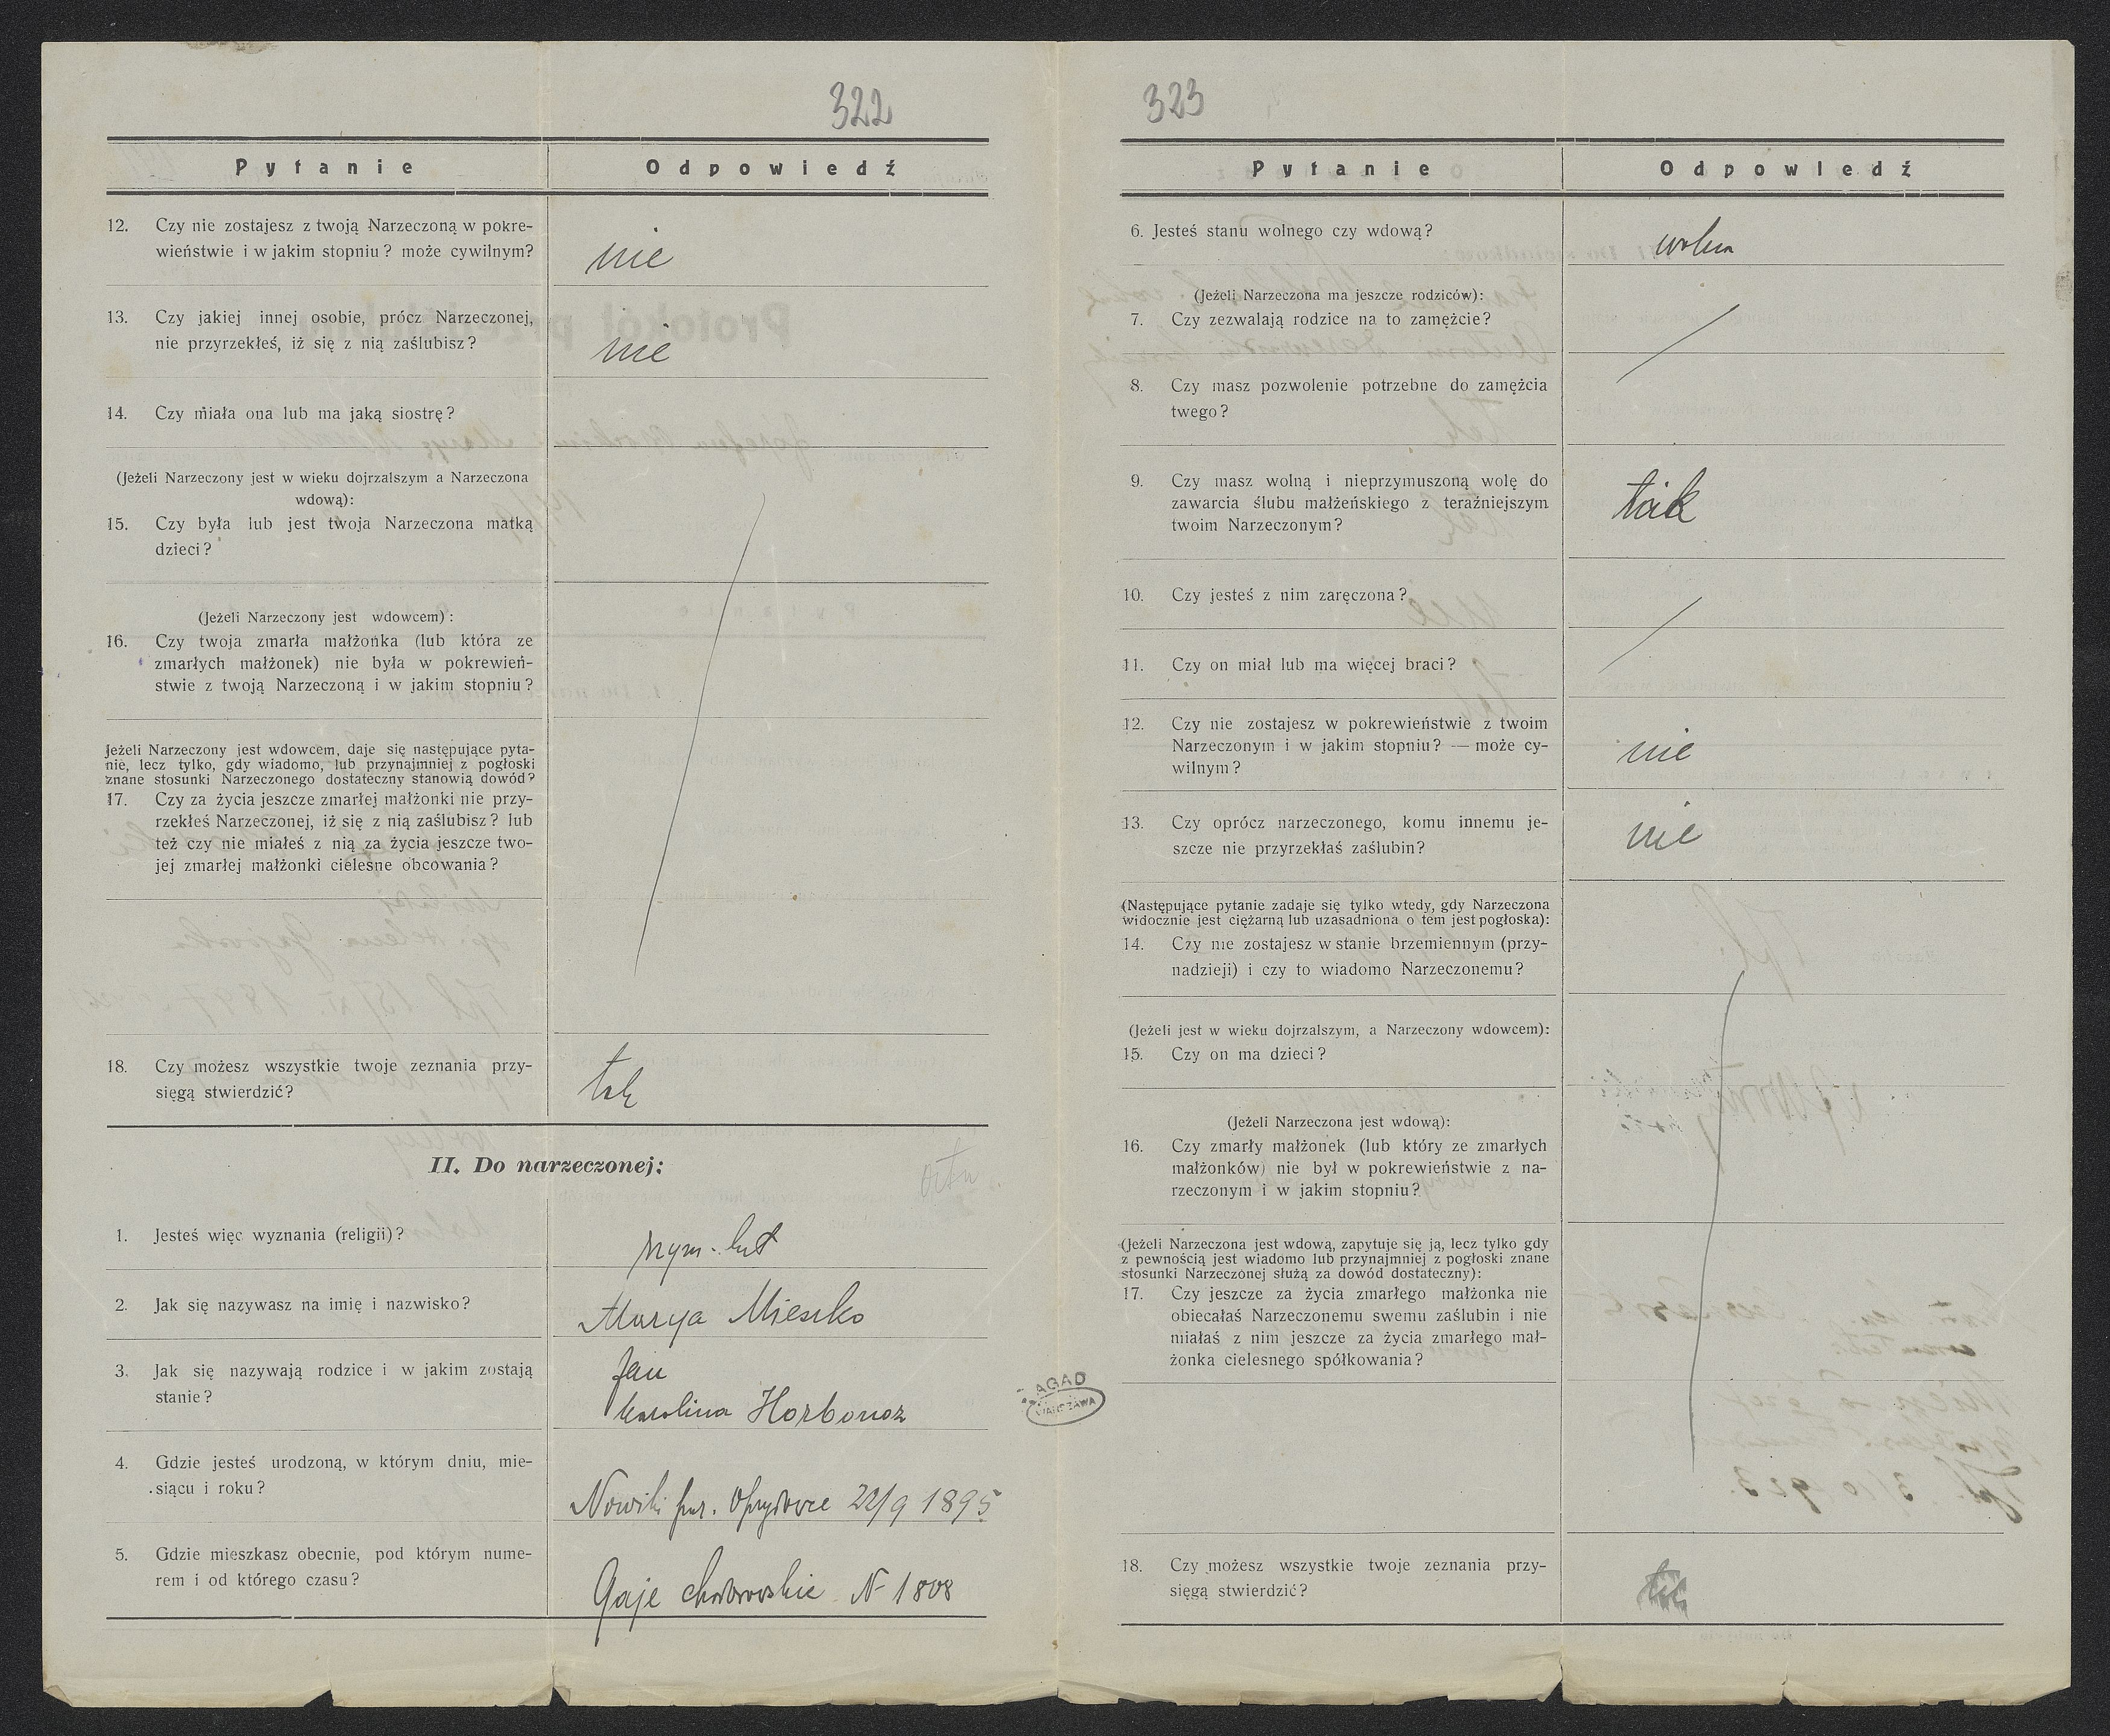 322
Pytanie Odpowiedź
12. Czy nie zostajesz z twoją Narzeczoną w pokre-
wieństwie i w jakim stopniu? może cywilnym?
nie
13. Czy jakiej innej osobie, prócz Narzeczonej,
nie przyrzekłeś, iż się z nią zaślubisz?
nie
14. Czy miała ona lub ma jaką siostrę?
(Jeżeli Narzeczony jest w wieku dojrzalszym a Narzeczona
wdową):
15. Czy była lub jest twoja Narzeczona matką
dzieci?
(Jeżeli Narzeczony jest wdowcem):
16. Czy twoja zmarła małżonka (lub która ze
zmarłych małżonek) nie była w pokrewień-
stwie z twoją Narzeczoną i w jakim stopniu?
Jeżeli Narzeczony jest wdowcem, daje się następujące pyta-
nie, lecz tylko, gdy wiadomo, lub przynajmniej z pogłoski
znane stosunki Narzeczonego dostateczny stanowią dowód?
17. Czy za życia jeszcze zmarłej małżonki nie przy-
rzekłeś Narzeczonej, iż się z nią zaślubisz? lub
też czy nie miałeś z nią za życia jeszcze two-
jej zmarłej małżonki cielesne obcowania?
18. Czy możesz wszystkie twoje zeznania przy-
sięgą stwierdzić?
tak
II. Do narzeczonej:
1. Jesteś więc wyznania (religii)?
rzym.-kat
2. Jak się nazywasz na imię i nazwisko?
Marya Mieszko
3. Jak się nazywają rodzice i w jakim zostają
stanie?
Jan
Karolina Horbonos
4. Gdzie jesteś urodzoną, w którym dniu, mie-
siącu i roku?
Nowiki 22/9 1895
5. Gdzie mieszkasz obecnie, pod którym nume-
rem i od którego czasu?
Gaje N 1808
AGAD
WARSZAWA
323
Pytanie Odpowiedź
6. Jesteś stanu wolnego czy wdową?
wolna
(Jeżeli Narzeczona ma jeszcze rodziców):
7. Czy zezwalają rodzice na to zamężcie?
8. Czy masz pozwolenie potrzebne do zamężcia
twego?
9. Czy masz wolną i nieprzymuszoną wolę do
zawarcia ślubu małżeńskiego z teraźniejszym
twoim Narzeczonym?
tak
10. Czy jesteś z nim zaręczona?
11. Czy on miał lub ma więcej braci?
12. Czy nie zostajesz w pokrewieństwie z twoim
Narzeczonym i w jakim stopniu? — może cy-
wilnym?
nie
13. Czy oprócz narzeczonego, komu innemu je-
szcze nie przyrzekłaś zaślubin?
nie
(Następujące pytanie zadaje się tylko wtedy, gdy Narzeczona
widocznie jest ciężarną lub uzasadniona o tem jest pogłoska):
14. Czy nie zostajesz w stanie brzemiennym (przy-
nadzieji) i czy to wiadomo Narzeczonemu?
(Jeżeli jest w wieku dojrzalszym, a Narzeczony wdowcem):
15. Czy on ma dzieci?
(Jeżeli Narzeczona jest wdową):
16. Czy zmarły małżonek (lub który ze zmarłych
małżonków) nie był w pokrewieństwie z na-
rzeczonym i w jakim stopniu?
(Jeżeli Narzeczona jest wdową, zapytuje się ją, lecz tylko gdy
z pewnością jest wiadomo lub przynajmniej z pogłoski znane
stosunki Narzeczonej służą za dowód dostateczny):
17. Czy jeszcze za życia zmarłego małżonka nie
obiecałaś Narzeczonemu swemu zaślubin i nie
miałaś z nim jeszcze za życia zmarłego mał-
żonka cielesnego spółkowania?
18. Czy możesz wszystkie twoje zeznania przy-
sięgą stwierdzić?
tak